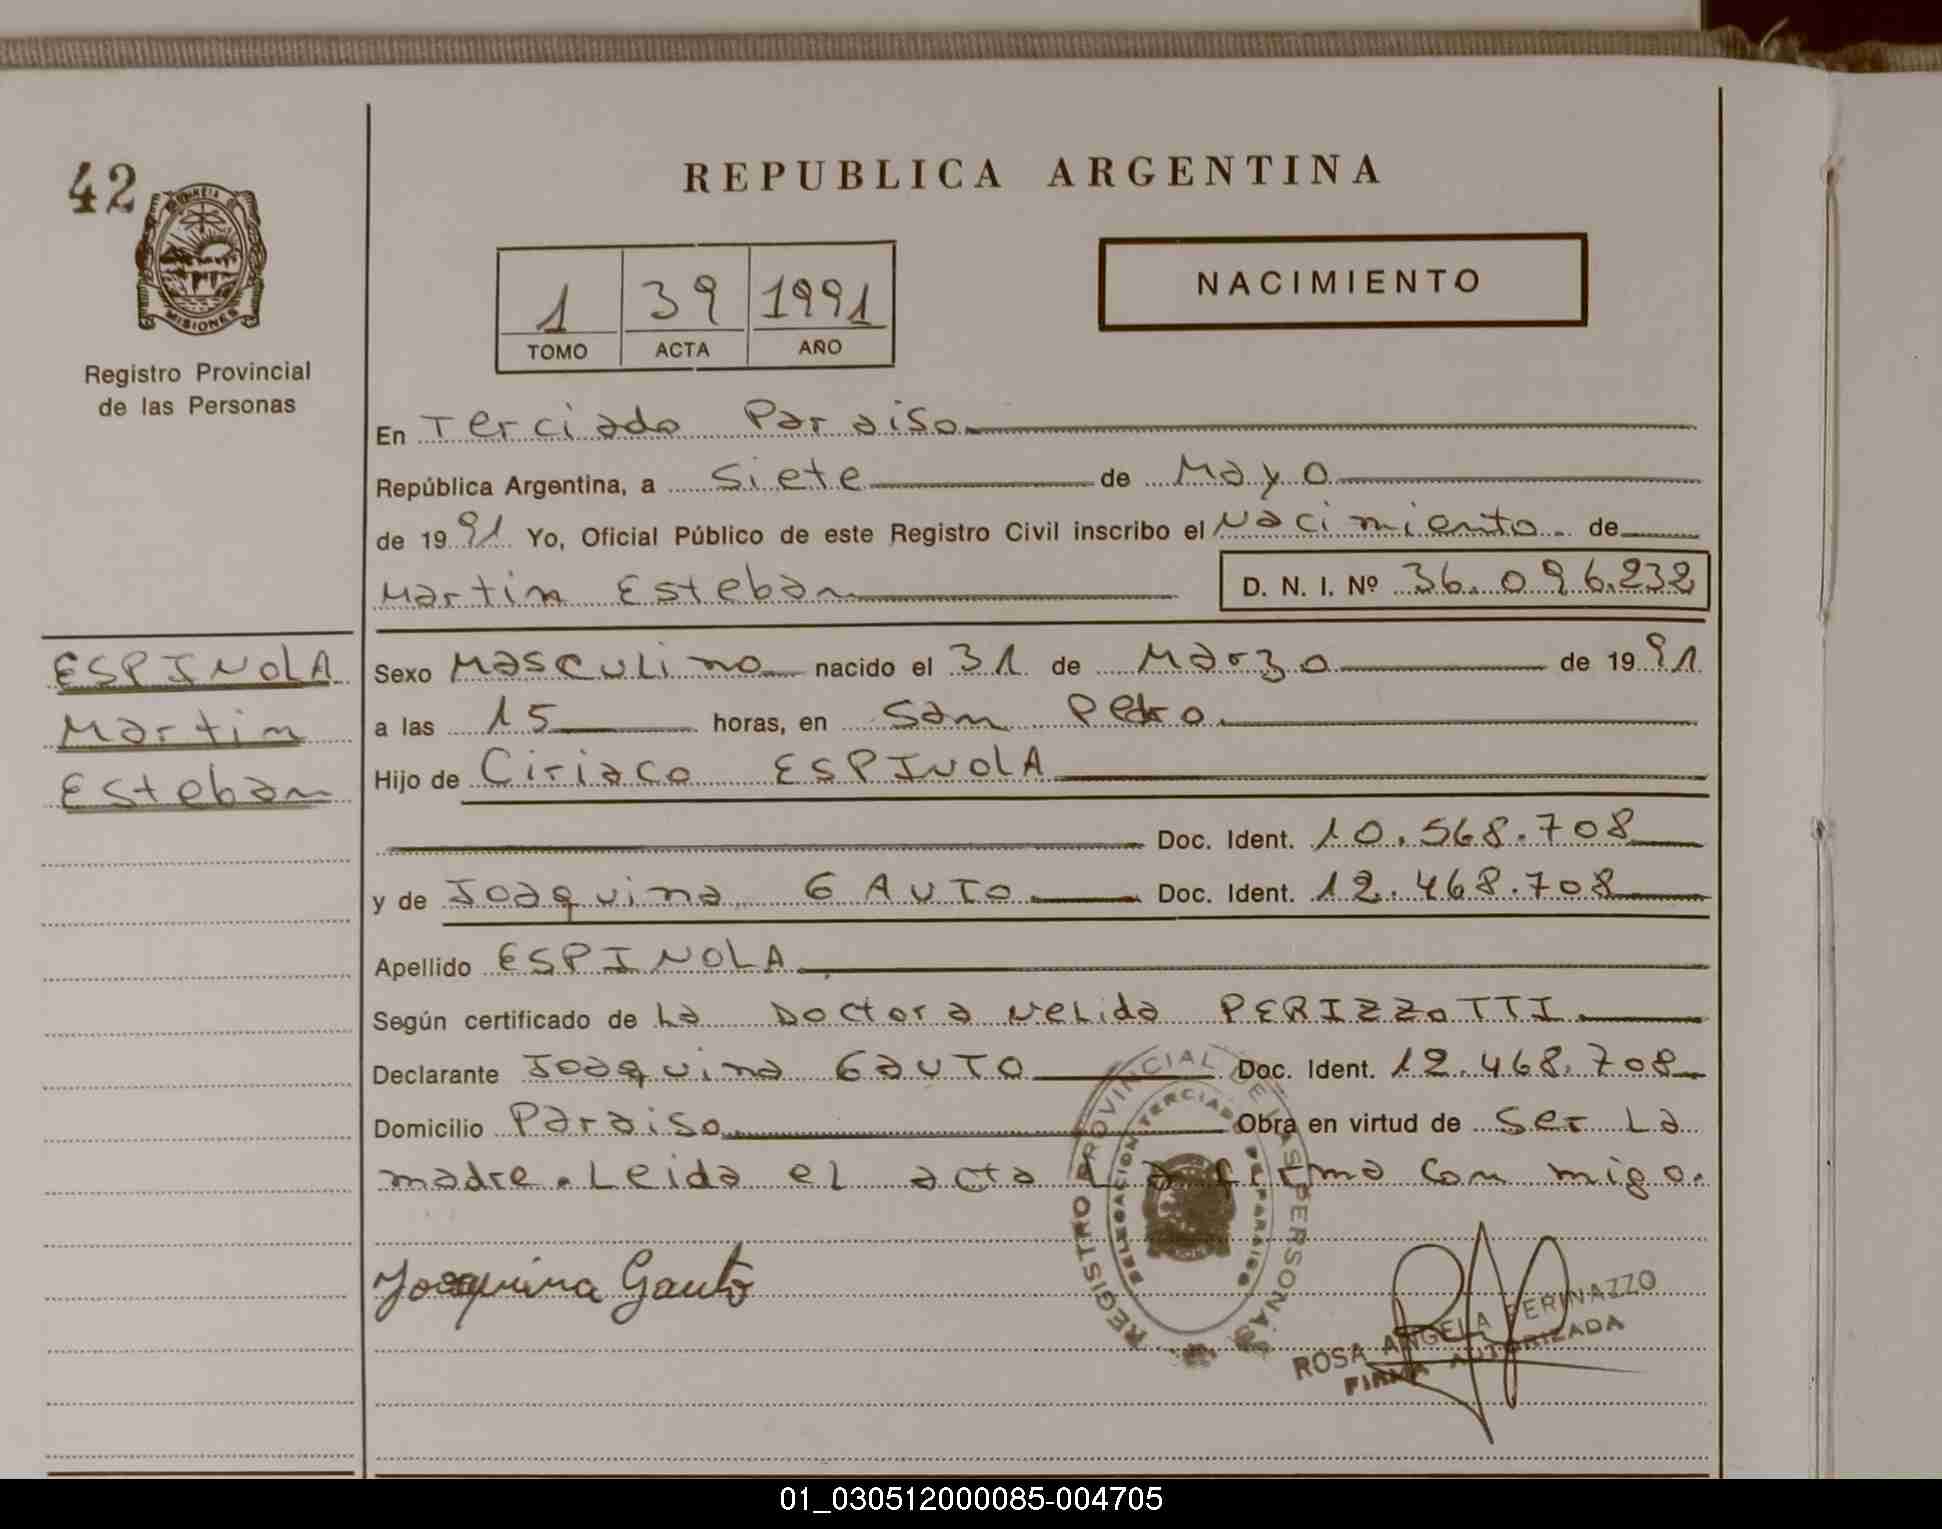 42
PROVINCIA DE
MISIONES
Registro Provincial
de las Personas
REPUBLICA ARGENTINA
1 39 1991
TOMO ACTA AÑO
NACIMIENTO
En Terciado Paraiso
República Argentina, a Siete de Mayo
de 1991 Yo, Oficial Público de este Registro Civil inscribo el Nacimiento de
Martin Esteban D. N. I. Nº 36.096.232
ESPINOLA
Martin
Esteban
Sexo Masculino nacido el 31 de Marzo de 1991
a las 15 horas, en San Pedro
Hijo de Ciriaco ESPINOLA
Doc. Ident. 10.568.708
y de Joaquina GAUTO Doc. Ident. 12.468.708
Apellido ESPINOLA
Según certificado de La Doctora Nelida PERIZZOTTI
Declarante Joaquina GAUTO Doc. Ident. 12.468.708
Domicilio Paraiso Obra en virtud de Ser La
madre. Leida el acta La firma Con migo.
REGISTRO PROVINCIAL DE LAS PERSONAS
DELEGACION TERCIADO PARAISO
Joaquina Gauto
ROSA ANGELA PERINAZZO
FIRMA AUTORIZADA
01_030512000085-004705